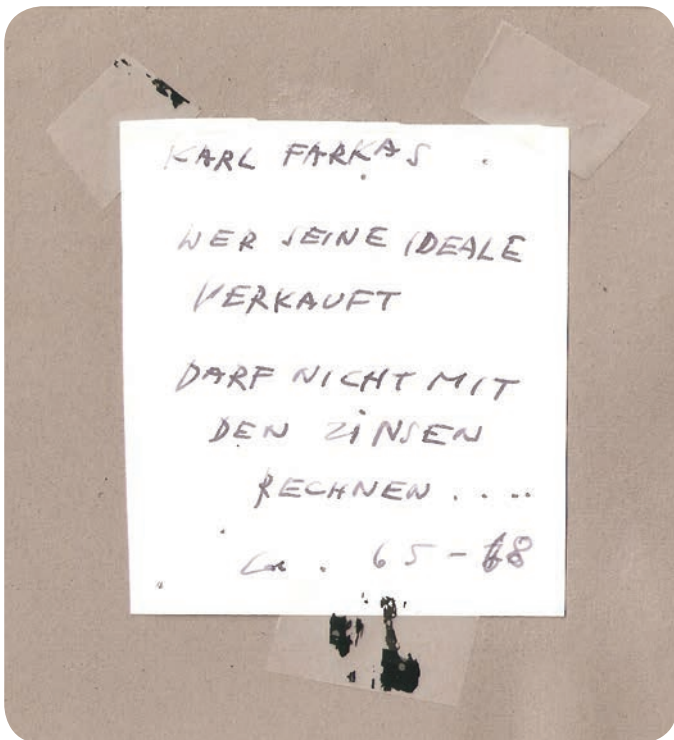 KARL FARKAS
WER SEINE IDEALE
VERKAUFT
DARF NICHT MIT
DEN ZINSEN
RECHNEN ....
Ca. 65-68